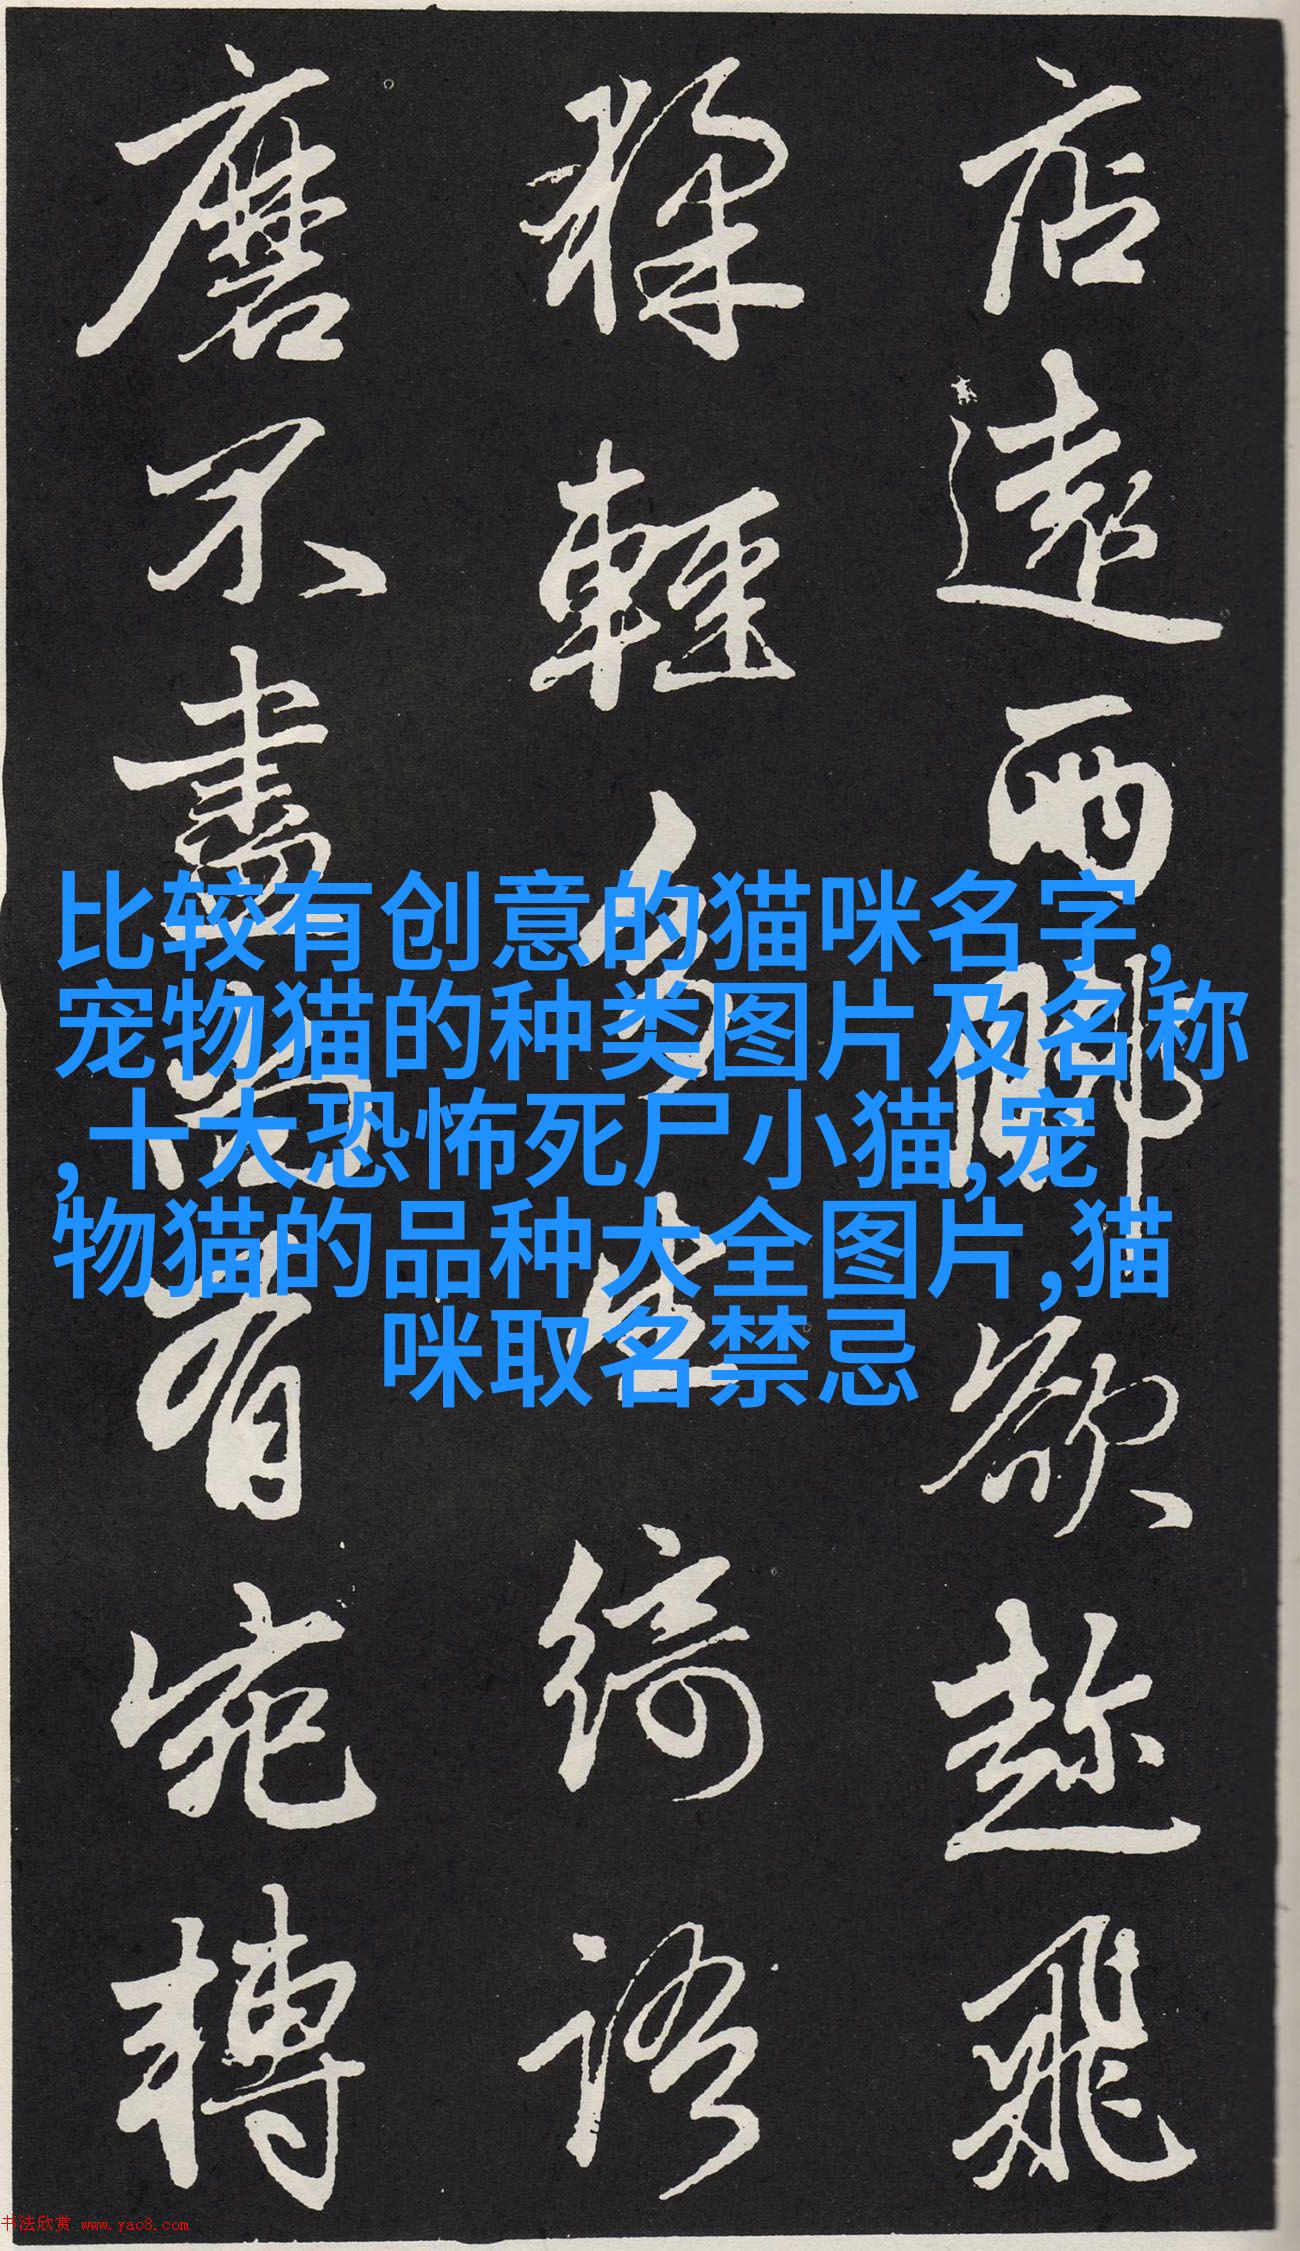 店遠西卿欲趁飛
輕多在綺語
磨不盡有宛轉
比较有创意的猫咪名字,
宠物猫的种类图片及名称
,十大恐怖死尸小猫,宠
物猫的品种大全图片,猫
咪取名禁忌
书法欣赏 www.yac8.com